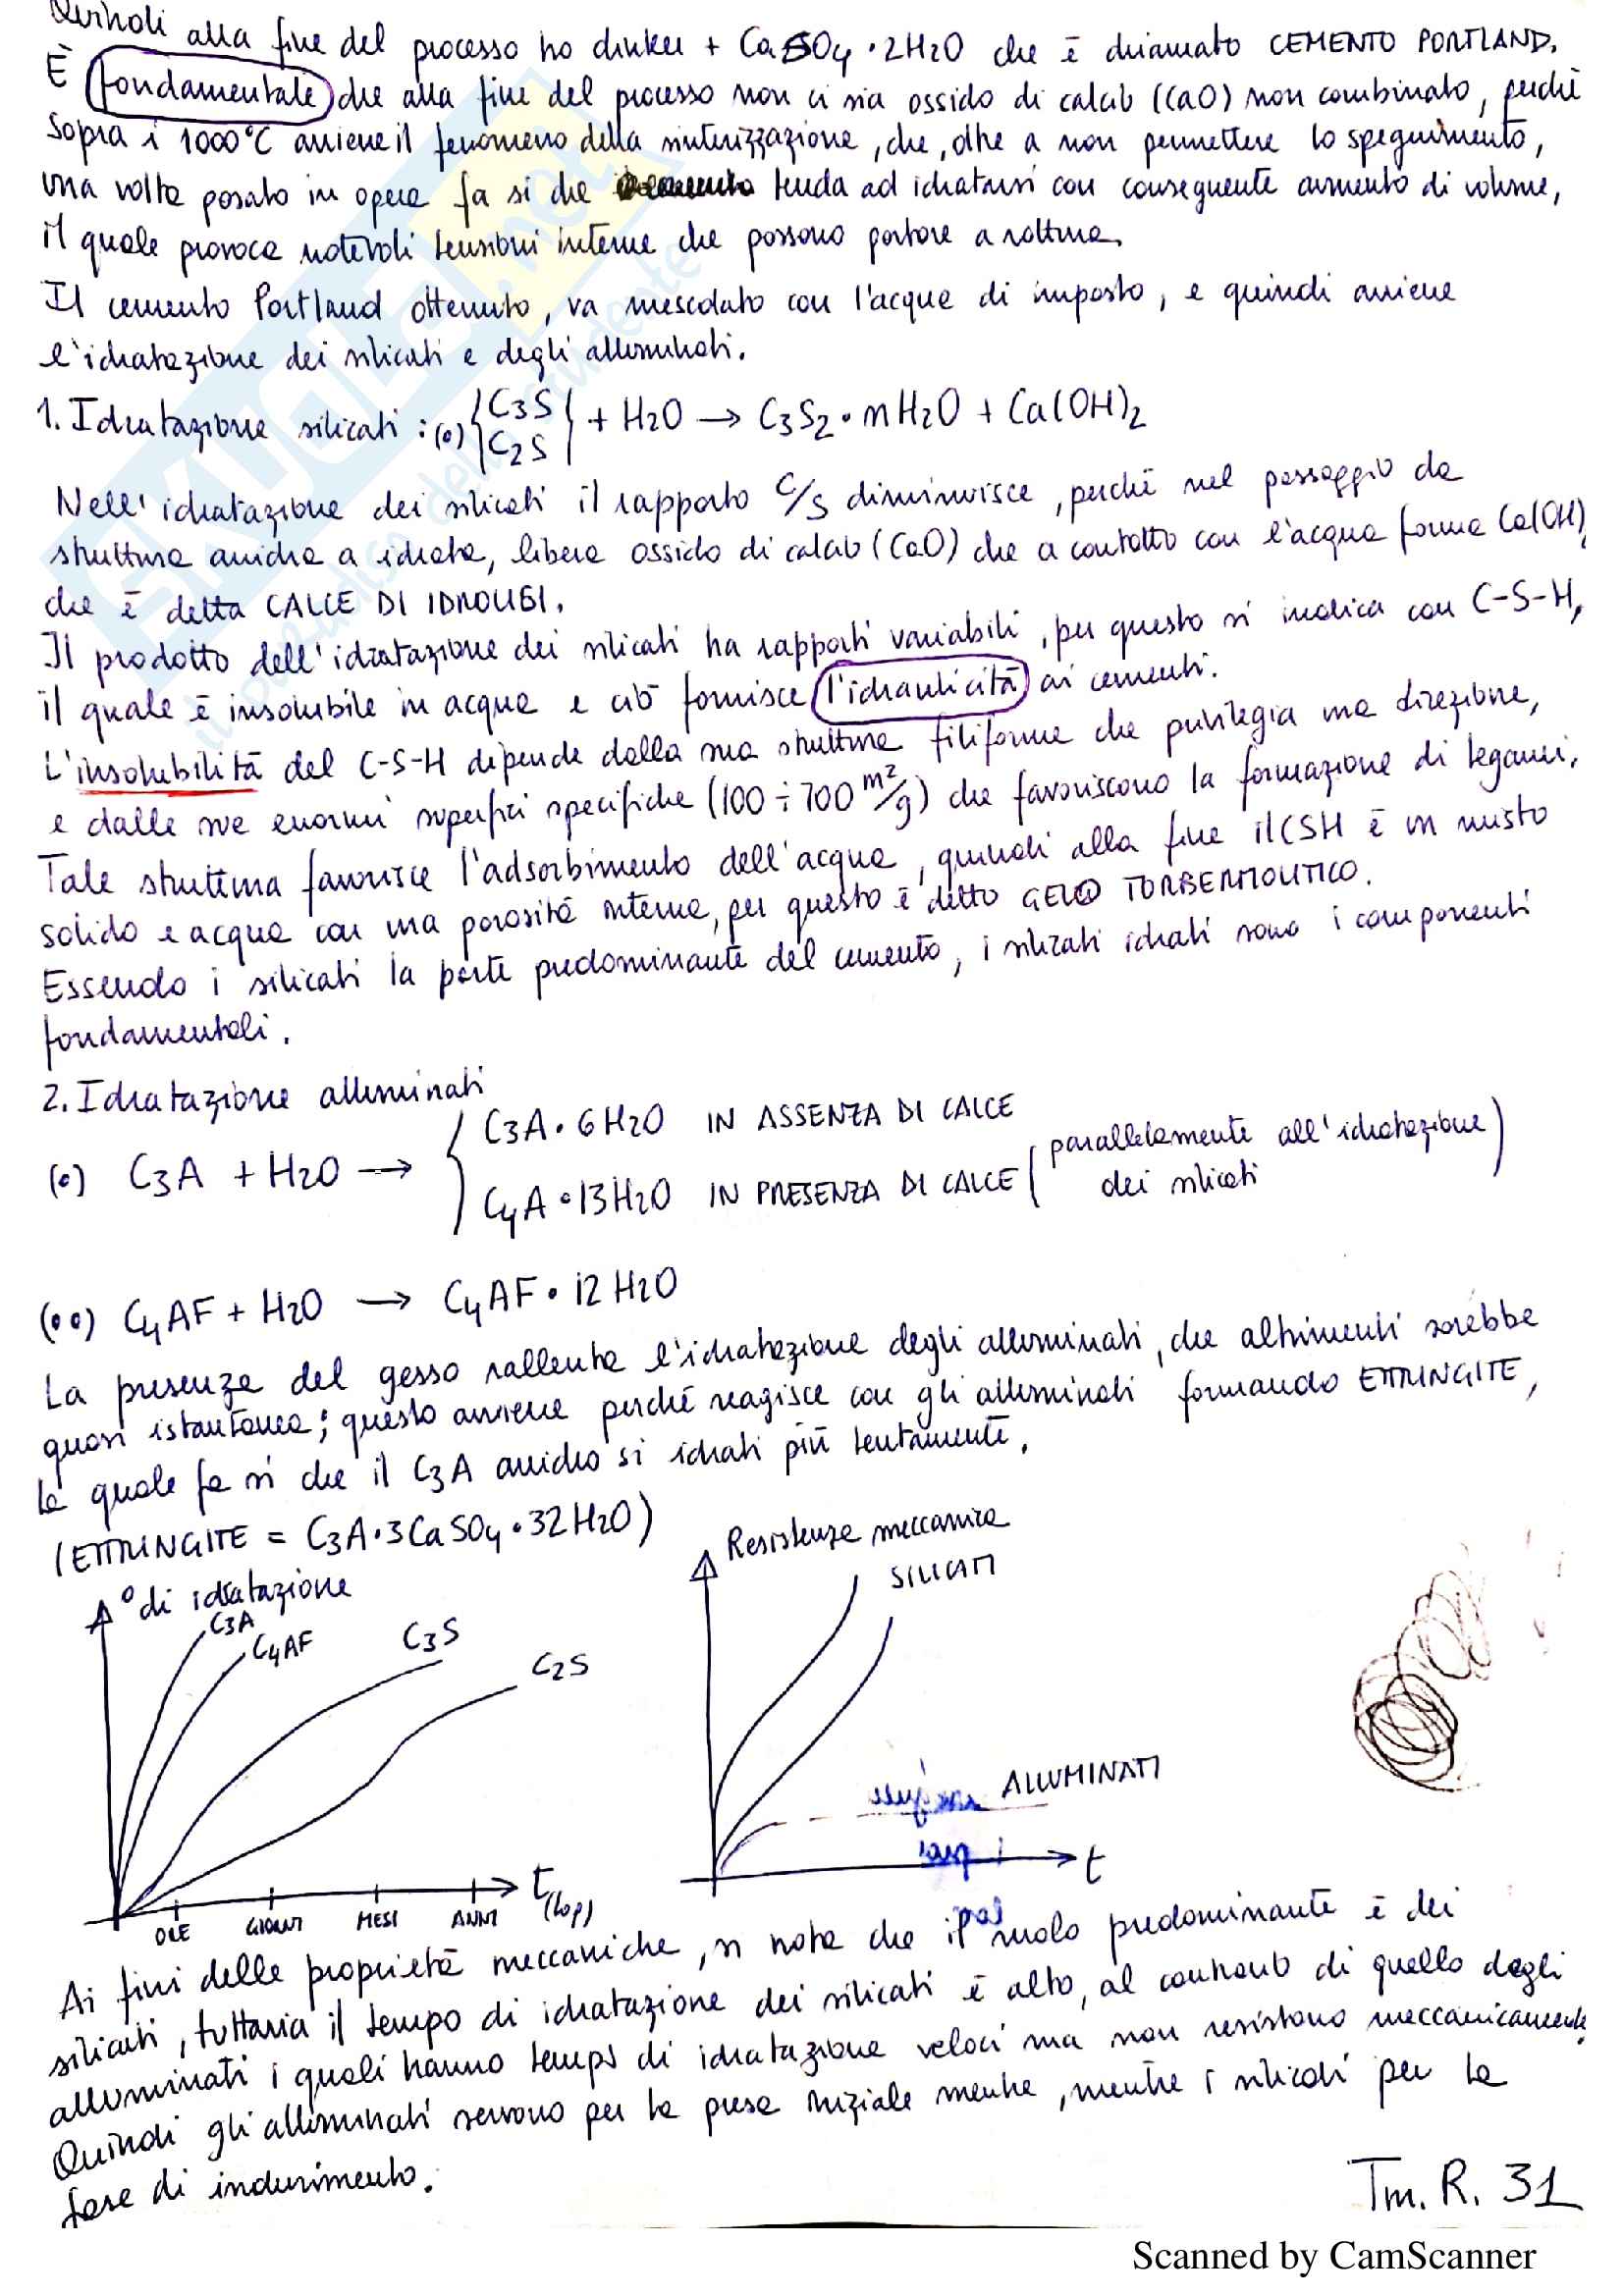 Quindi alla fine del processo ho clinker + CaSO4 · 2H2O che è chiamato CEMENTO PORTLAND.
È fondamentale che alla fine del processo non ci sia ossido di calcio (CaO) non combinato, perché
sopra i 1000°C avviene il fenomeno della sinterizzazione, che, oltre a non permettere lo spegnimento,
una volta posato in opera fa si che tenda ad idratarsi con conseguente aumento di volume,
il quale provoca notevoli tensioni interne che possono portare a rottura.
Il cemento Portland ottenuto, va mescolato con l'acqua di impasto, e quindi avviene
l'idratazione dei silicati e degli alluminati.
1. Idratazione silicati : (o) {C3S C2S} + H2O → C3S2 · mH2O + Ca(OH)2
Nell'idratazione dei silicati il rapporto C/S diminuisce, perché nel passaggio da
struttura anidra a idrata, libera ossido di calcio (CaO) che a contatto con l'acqua forma Ca(OH)2
che è detta CALCE DI IDROLISI.
Il prodotto dell'idratazione dei silicati ha rapporti variabili, per questo si indica con C-S-H,
il quale è insolubile in acqua e ciò fornisce l'idraulicità ai cementi.
L'insolubilità del C-S-H dipende dalla sua struttura filiforme che privilegia una direzione,
e dalle sue enormi superfici specifiche (100 ÷ 700 m²/g) che favoriscono la formazione di legami.
Tale struttura favorisce l'adsorbimento dell'acqua, quindi alla fine il CSH è un misto
solido e acqua con una porosità interna, per questo è detto GELO TORBERMOLITICO.
Essendo i silicati la parte predominante del cemento, i silicati idrati sono i componenti
fondamentali.
2. Idratazione alluminati
(o) C3A + H2O → { C3A · 6H2O IN ASSENZA DI CALCE
C4A · 13H2O IN PRESENZA DI CALCE (parallelamente all'idratazione dei silicati)
(oo) C4AF + H2O → C4AF · 12 H2O
La presenza del gesso rallenta l'idratazione degli alluminati, che altrimenti sarebbe
quasi istantanea; questo avviene perché reagisce con gli alluminati formando ETTRINGITE,
la quale fa sì che il C3A anidro si idrati più lentamente.
(ETTRINGITE = C3A · 3CaSO4 · 32H2O)
° di idratazione
C3A
C4AF
C3S
C2S
ORE GIORNI MESI ANNI t (log)
Resistenza meccanica
SILICATI
ALLUMINATI
t
Ai fini delle proprietà meccaniche, si nota che il ruolo predominante è dei
silicati, tuttavia il tempo di idratazione dei silicati è alto, al contrario di quello degli
alluminati i quali hanno tempi di idratazione veloci ma non resistono meccanicamente.
Quindi gli alluminati servono per la presa iniziale mentre, mentre i silicati per la
fase di indurimento.
Tm. R. 31
Scanned by CamScanner